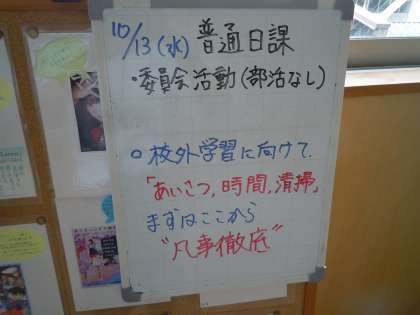 10/13(水) 普通日課
・委員会活動(部活なし)
○校外学習に向けて.
「あいさつ,時間,清掃」
まずはここから
"凡事徹底"